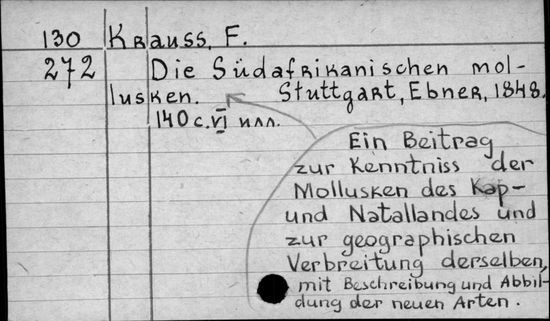 130 Krauss, F.
272 Die Südafrikanischen mol-
lusken. Stuttgart, Ebner, 1848.
140 c. VI илл.
Ein Beitrag
zur Kenntniss der
Mollusken des Kap-
und Natallandes und
zur geographischen
Verbreitung derselben,
mit Beschreibung und Abbil-
dung der neuen Arten.